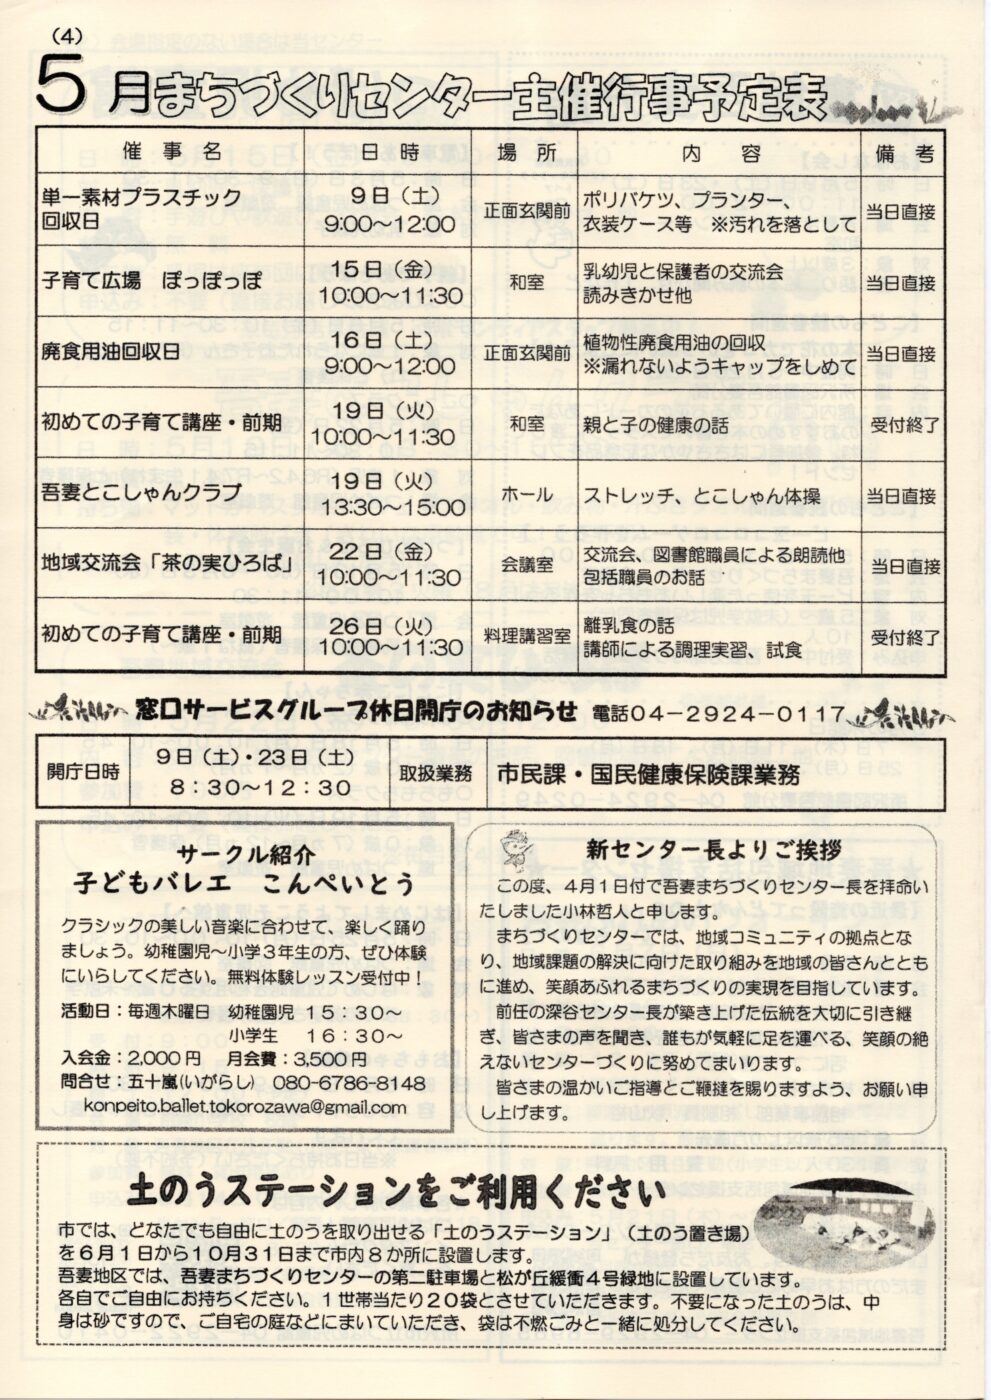 (4)
5月まちづくりセンター主催行事予定表
催事名 日時 場所 内容 備考
単一素材プラスチック
回収日
9日（土）
9:00～12:00
正面玄関前
ポリバケツ、プランター、
衣装ケース等　※汚れを落として
当日直接
子育て広場　ぽっぽっぽ
15日（金）
10:00～11:30
和室
乳幼児と保護者の交流会
読みきかせ他
当日直接
廃食用油回収日
16日（土）
9:00～12:00
正面玄関前
植物性廃食用油の回収
※漏れないようキャップをしめて
当日直接
初めての子育て講座・前期
19日（火）
10:00～11:30
和室
親と子の健康の話
受付終了
吾妻とこしゃんクラブ
19日（火）
13:30～15:00
ホール
ストレッチ、とこしゃん体操
当日直接
地域交流会「茶の実ひろば」
22日（金）
10:00～11:30
会議室
交流会、図書館職員による朗読他
包括職員のお話
当日直接
初めての子育て講座・前期
26日（火）
10:00～11:30
料理講習室
離乳食の話
講師による調理実習、試食
受付終了
窓口サービスグループ休日開庁のお知らせ　電話04－2924－0117
開庁日時
9日（土）・23日（土）
8:30～12:30
取扱業務
市民課・国民健康保険課業務
サークル紹介
子どもバレエ　こんぺいとう
クラシックの美しい音楽に合わせて、楽しく踊り
ましょう。幼稚園児～小学3年生の方、ぜひ体験
にいらしてください。無料体験レッスン受付中！
活動日：毎週木曜日　幼稚園児　15：30～
小学生　16：30～
入会金：2,000円　月会費：3,500円
問合せ：五十嵐(いがらし)　080-6786-8148
konpeito.ballet.tokorozawa@gmail.com
新センター長よりご挨拶
この度、4月1日付で吾妻まちづくりセンター長を拝命い
たしました小林哲人と申します。
まちづくりセンターでは、地域コミュニティの拠点とな
り、地域課題の解決に向けた取り組みを地域の皆さんととも
に進め、笑顔あふれるまちづくりの実現を目指しています。
前任の深谷センター長が築き上げた伝統を大切に引き継
ぎ、皆さまの声を聞き、誰もが気軽に足を運べる、笑顔の絶
えないセンターづくりに努めてまいります。
皆さまの温かいご指導とご鞭撻を賜りますよう、お願い申
し上げます。
土のうステーションをご利用ください
市では、どなたでも自由に土のうを取り出せる「土のうステーション」（土のう置き場）
を6月1日から10月31日まで市内8か所に設置します。
吾妻地区では、吾妻まちづくりセンターの第二駐車場と松が丘緩衝4号緑地に設置しています。
各自でご自由にお持ちください。1世帯当たり20袋とさせていただきます。不要になった土のうは、中
身は砂ですので、ご自宅の庭などにまいていただき、袋は不燃ごみと一緒に処分してください。